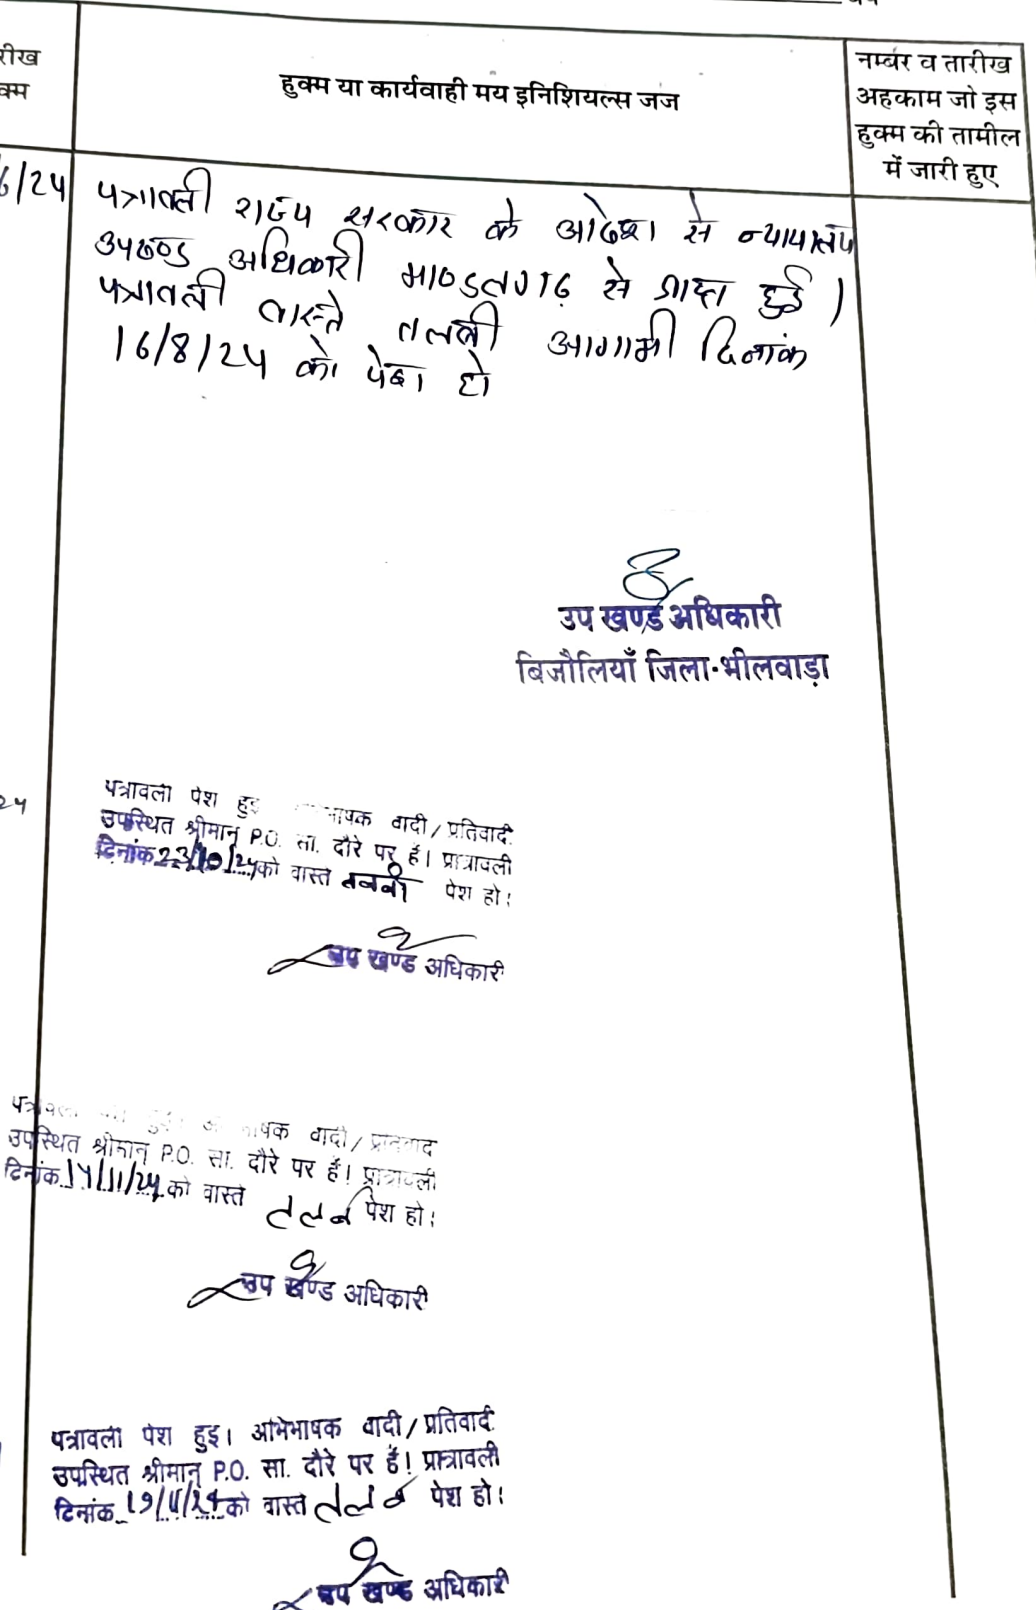 रीख
क्म
हुक्म या कार्यवाही मय इनिशियल्स जज
नम्बर व तारीख
अहकाम जो इस
हुक्म की तामील
में जारी हुए
6/24
पत्रावली राज्य सरकार के आदेश से न्यायालय
उपखण्ड अधिकारी माण्डलगढ़ से प्राप्त हुई।
पत्रावली वास्ते तलबी आगामी दिनांक
16/8/24 को पेश हो
उप खण्ड अधिकारी
बिजौलियाँ जिला-भीलवाड़ा
24
पत्रावली पेश हुई भाषक वादी/प्रतिवादी
उपस्थित श्रीमान् P.O. सा. दौरे पर हैं। प्रात्रावली
दिनांक 23/10/24 को वास्ते तलबी पेश हो।
उप खण्ड अधिकारी
भाषक वादी/
उपस्थित श्रीमान् P.O. सा. दौरे पर हैं। प्रात्रावली
दिनांक 14/11/24 को वास्ते तलब पेश हो।
उप खण्ड अधिकारी
पत्रावली पेश हुई। अभिभाषक वादी/प्रतिवादी
उपस्थित श्रीमान् P.O. सा. दौरे पर हैं। प्रात्रावली
दिनांक को वास्ते तलब पेश हो।
उप खण्ड अधिकारी